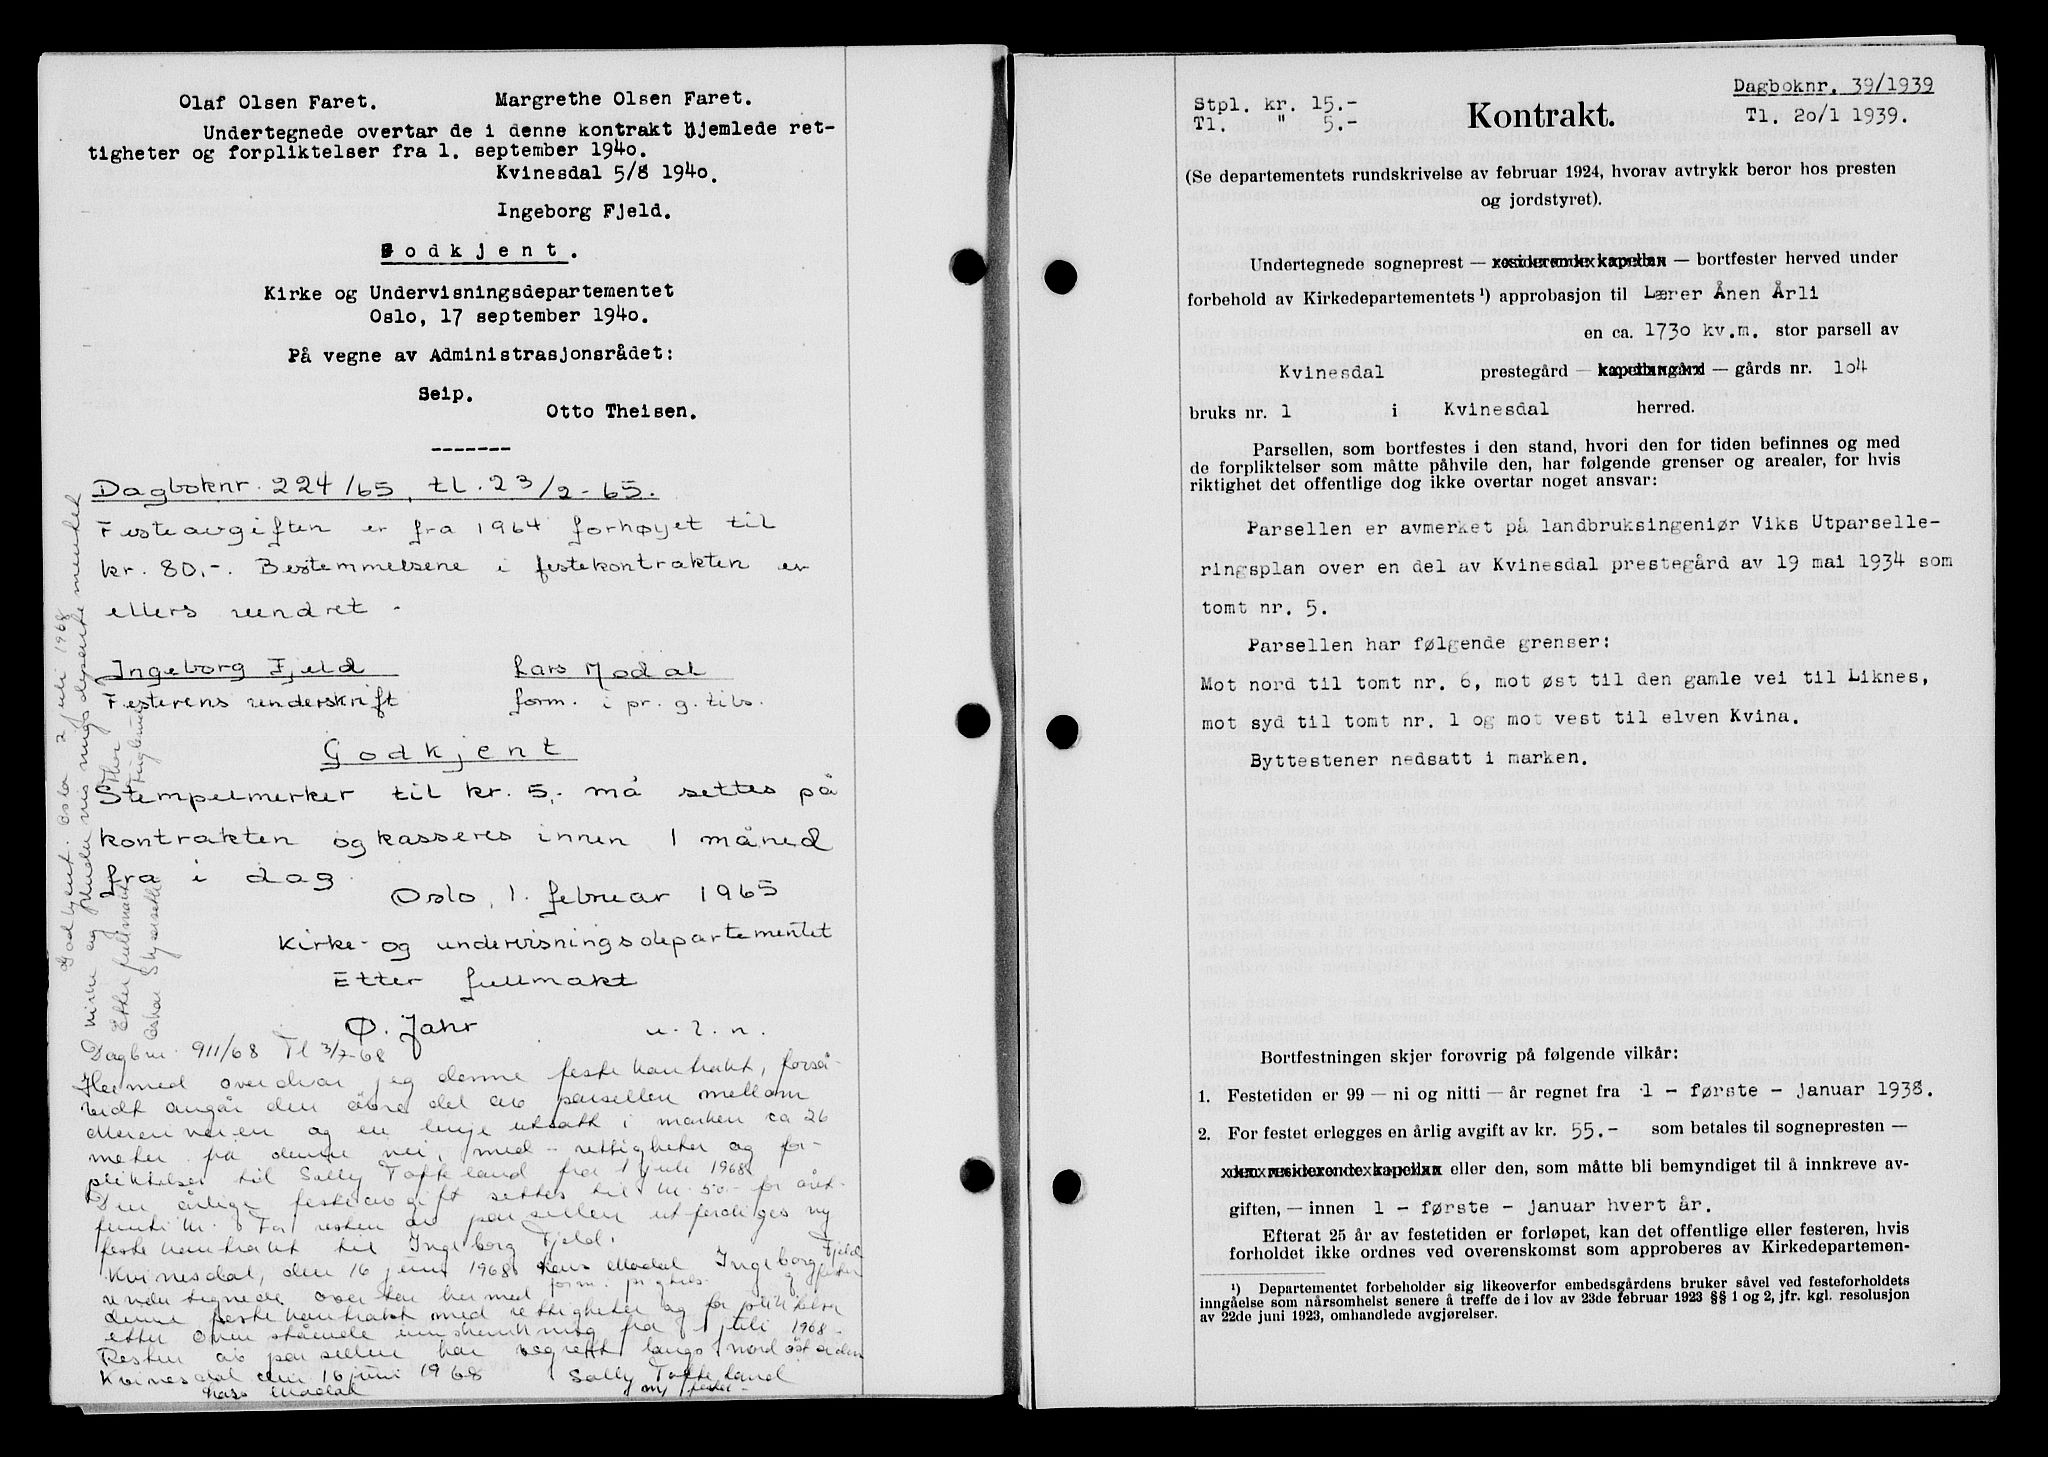 Olaf Olsen Faret. Margrethe Olsen Faret.
Undertegnede overtar de i denne kontrakt hjemlede ret-
tigheter og forpliktelser fra 1. september 1940.
Kvinesdal 5/8 1940.
Ingeborg Fjeld.
Godkjent.
Kirke og Undervisningsdepartementet
Oslo, 17 september 1940.
På vegne av Administrasjonsrådet:
Seip.
Otto Theisen.
Dagboknr. 224/65, tl. 23/2-65.
Festeavgiften er fra 1964 forhøyet til
kr. 80,-. Bestemmelsene i festekontrakten er
ellers uendret.
Ingeborg Fjeld Lars Modal
Festerens underskrift form. i pr. g. tils.
Godkjent
Stempelmerker til kr. 5,- må settes på
kontrakten og kasseres innen 1 måned
fra i dag.
Oslo, 1. februar 1965
Kirke- og undervisningsdepartementet
Etter fullmakt
Ø. Jahr u. l. n.
Godkjent. Oslo 2 juli 1968
Kirke og Undervisningsdepartementet
Etter fullmakt Thor
Oskar
Dagb.nr. 911/68 Tl 3/7-68
Hermed overdrar jeg denne festekontrakt, forså-
vidt angår den øvre del av parsellen mellom
veien og en linje utsatt i marken ca 26
meter fra denne vei, med rettigheter og for-
pliktelser til Solly Tofteland fra 1 juli 1968
Den årlige festeavgift settes til kr. 50.- for året
femti kr. For resten av parsellen utferdiges ny
festekontrakt til Ingeborg Fjeld.
Kvinesdal, den 16 juni 1968 Lars Modal Ingeborg Fjeld
form. pr.g.tils. fester
Undertegnede overtar hermed
denne festekontrakt med rettigheter og forpliktelser
etter ovenstående innskrenkning fra 1 juli 1968.
Resten av parsellen har vegrett langs nordöstsiden
Kvinesdal den 16 juni 1968 Solly Tofteland
Lars Modal ny fester
Dagboknr. 39/1939
Stpl. kr. 15.- Kontrakt. Tl. 20/1 1939.
Tl. " 5.-
(Se departementets rundskrivelse av februar 1924, hvorav avtrykk beror hos presten
og jordstyret).
Undertegnede sogneprest — residerende kapellan — bortfester herved under
forbehold av Kirkedepartementets ¹) approbasjon til Lærer Ånen Årli
en ca. 1730 kv.m. stor parsell av
Kvinesdal prestegård — kapellangård — gårds nr. 104
bruks nr. 1 i Kvinesdal herred.
Parsellen, som bortfestes i den stand, hvori den for tiden befinnes og med
de forpliktelser som måtte påhvile den, har følgende grenser og arealer, for hvis
riktighet det offentlige dog ikke overtar noget ansvar:
Parsellen er avmerket på landbruksingeniør Viks Utparselle-
ringsplan over en del av Kvinesdal prestegård av 19 mai 1934 som
tomt nr. 5.
Parsellen har følgende grenser:
Mot nord til tomt nr. 6, mot øst til den gamle vei til Liknes,
mot syd til tomt nr. 1 og mot vest til elven Kvina.
Byttestener nedsatt i marken.
Bortfestningen skjer forøvrig på følgende vilkår:
1. Festetiden er 99 — ni og nitti — år regnet fra 1 - første - januar 1938.
2. For festet erlegges en årlig avgift av kr. 55.- som betales til sognepresten —
den residerende kapellan eller den, som måtte bli bemyndiget til å innkreve av-
giften, — innen 1 - første - januar hvert år.
Efterat 25 år av festetiden er forløpet, kan det offentlige eller festeren, hvis
forholdet ikke ordnes ved overenskomst som approberes av Kirkedepartemen-
¹) Departementet forbeholder sig likeoverfor embedsgårdens bruker såvel ved festeforholdets
inngåelse som nårsomhelst senere å treffe de i lov av 23de februar 1923 §§ 1 og 2, jfr. kgl. resolusjon
av 22de juni 1923, omhandlede avgjørelser.